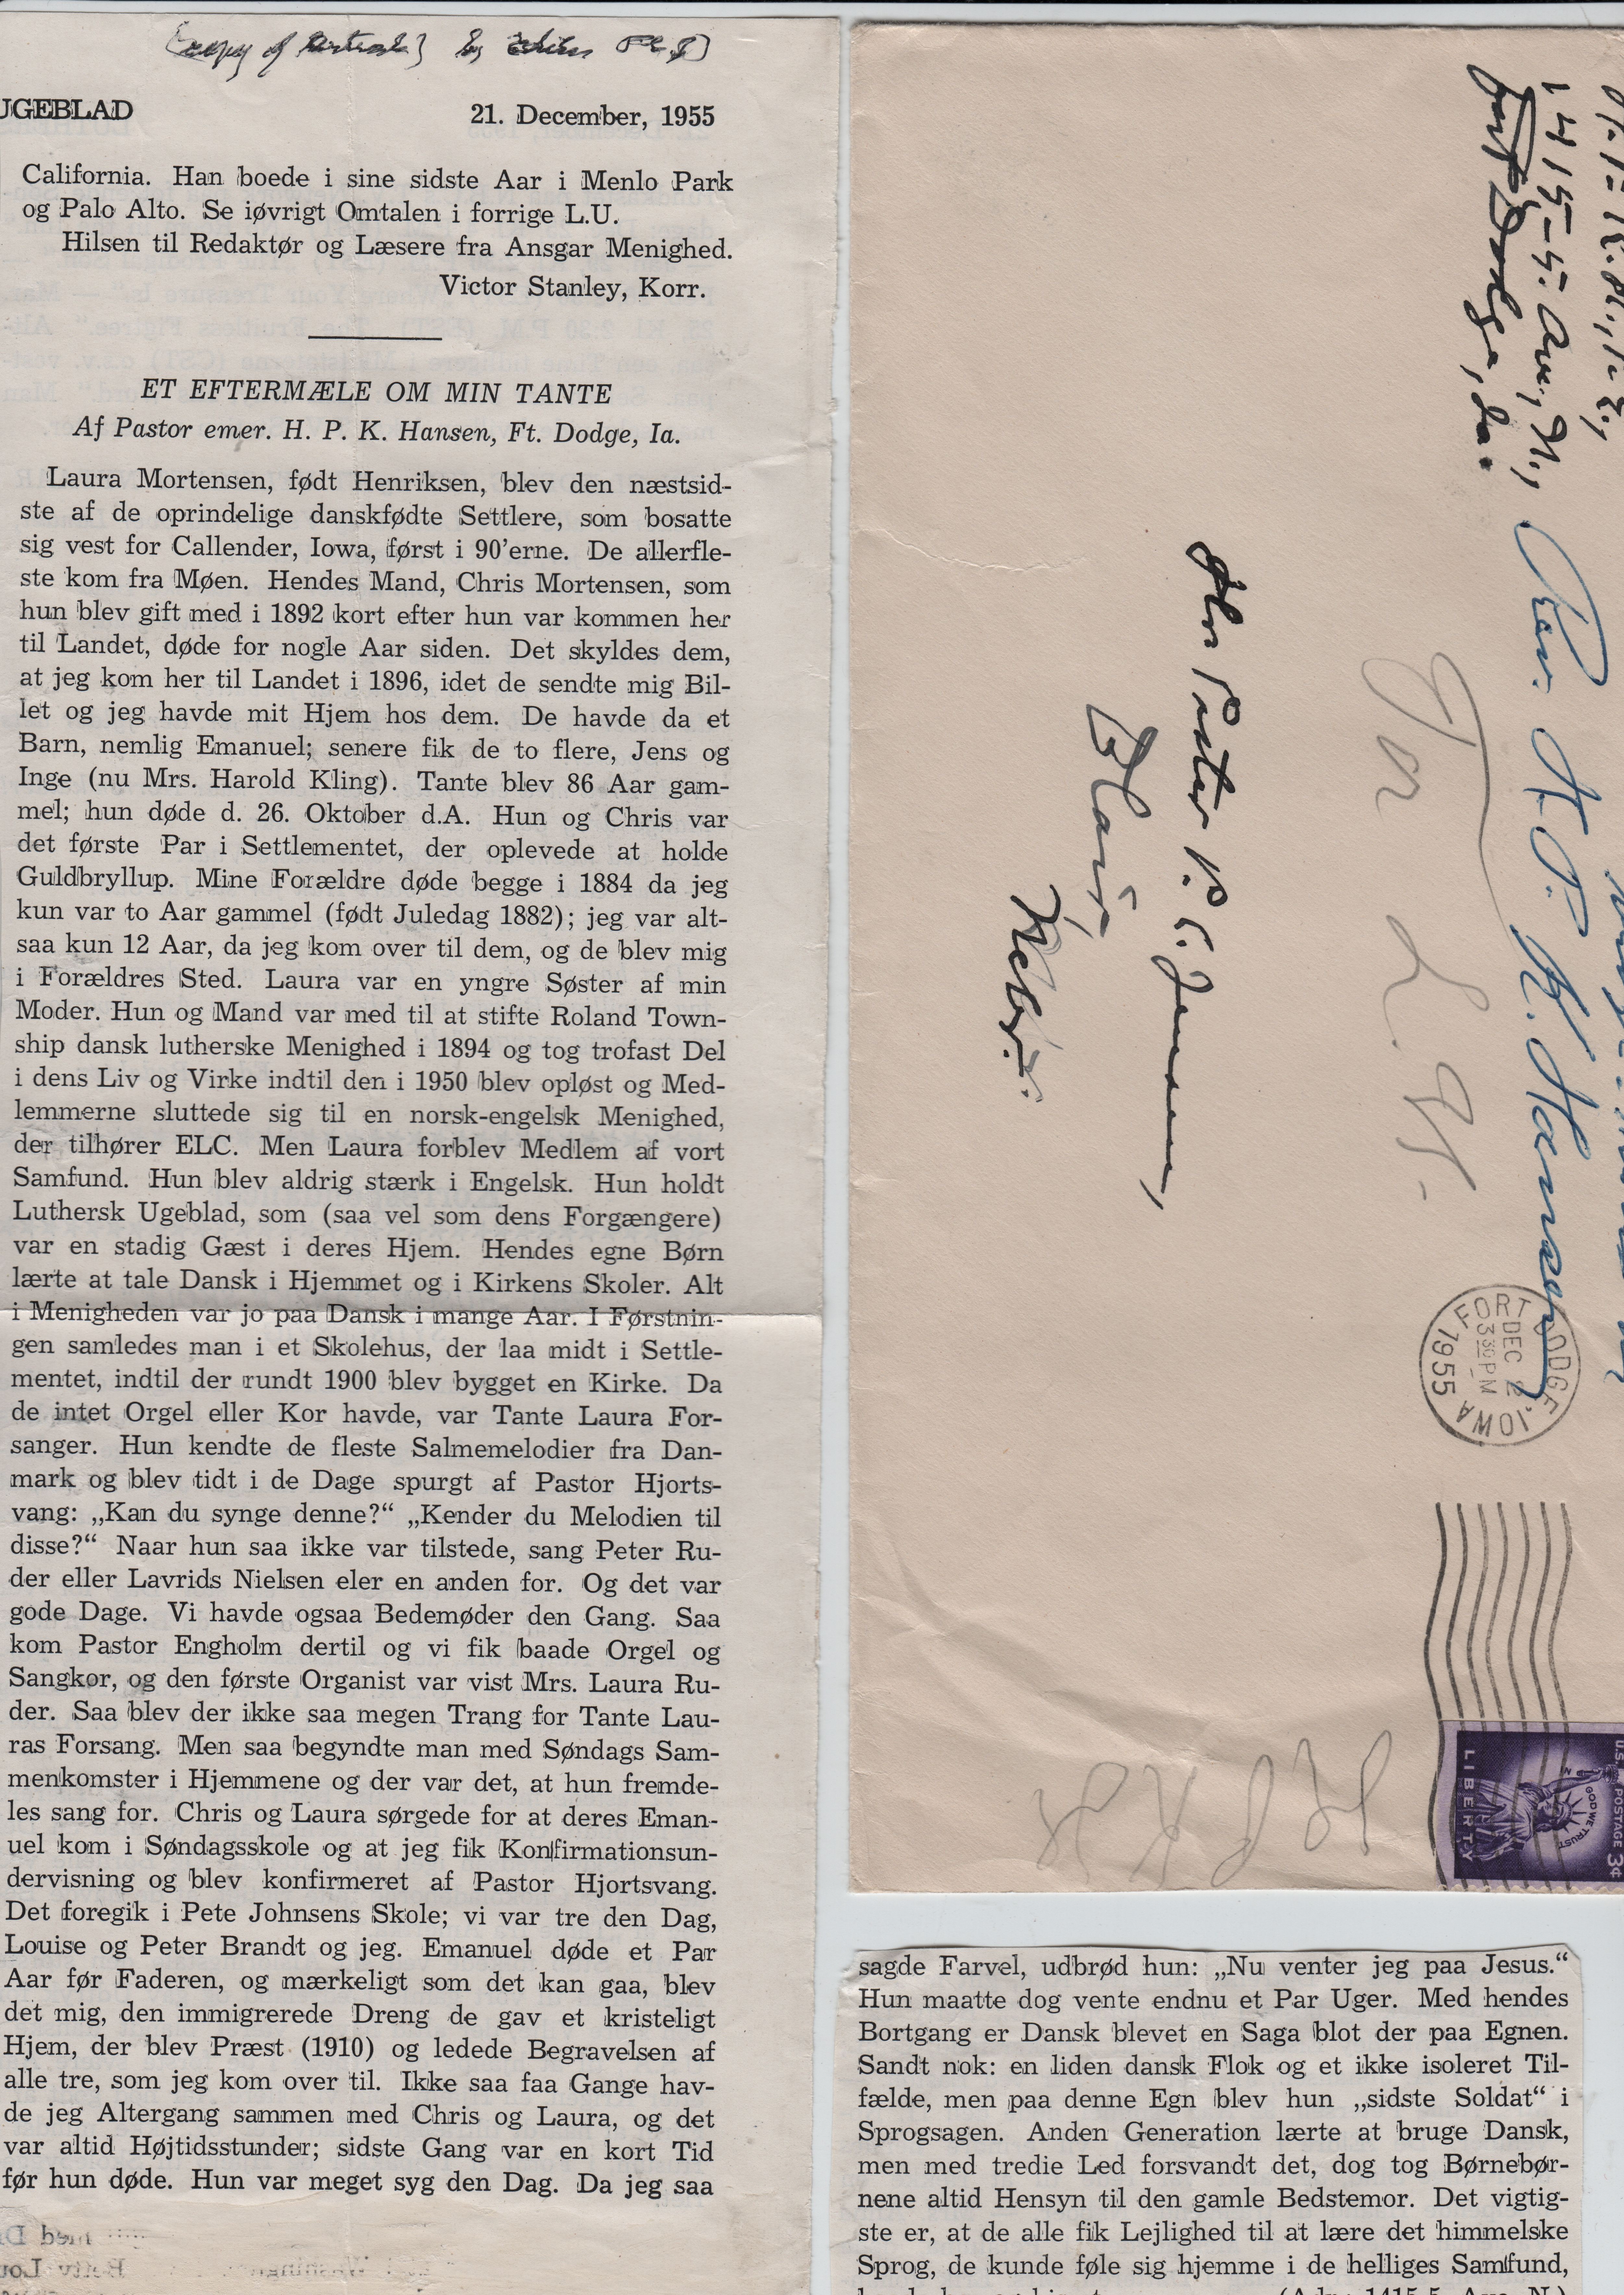 UGEBLAD 21. December, 1955
California. Han boede i sine sidste Aar i Menlo Park
og Palo Alto. Se iøvrigt Omtalen i forrige L.U.
Hilsen til Redaktør og Læsere fra Ansgar Menighed.
Victor Stanley, Korr.
ET EFTERMÆLE OM MIN TANTE
Af Pastor emer. H. P. K. Hansen, Ft. Dodge, Ia.
Laura Mortensen, født Henriksen, blev den næstsid-
ste af de oprindelige danskfødte Settlere, som bosatte
sig vest for Callender, Iowa, først i 90’erne. De allerfle-
ste kom fra Møen. Hendes Mand, Chris Mortensen, som
hun blev gift med i 1892 kort efter hun var kommen her
til Landet, døde for nogle Aar siden. Det skyldes dem,
at jeg kom her til Landet i 1896, idet de sendte mig Bil-
let og jeg havde mit Hjem hos dem. De havde da et
Barn, nemlig Emanuel; senere fik de to flere, Jens og
Inge (nu Mrs. Harold Kling). Tante blev 86 Aar gam-
mel; hun døde d. 26. Oktober d.A. Hun og Chris var
det første Par i Settlementet, der oplevede at holde
Guldbryllup. Mine Forældre døde begge i 1884 da jeg
kun var to Aar gammel (født Juledag 1882); jeg var alt-
saa kun 12 Aar, da jeg kom over til dem, og de blev mig
i Forældres Sted. Laura var en yngre Søster af min
Moder. Hun og Mand var med til at stifte Roland Town-
ship dansk lutherske Menighed i 1894 og tog trofast Del
i dens Liv og Virke indtil den i 1950 blev opløst og Med-
lemmerne sluttede sig til en norsk-engelsk Menighed,
der tilhører ELC. Men Laura forblev Medlem af vort
Samfund. Hun blev aldrig stærk i Engelsk. Hun holdt
Luthersk Ugeblad, som (saa vel som dens Forgængere)
var en stadig Gæst i deres Hjem. Hendes egne Børn
lærte at tale Dansk i Hjemmet og i Kirkens Skoler. Alt
i Menigheden var jo paa Dansk i mange Aar. I Førstnin-
gen samledes man i et Skolehus, der laa midt i Settle-
mentet, indtil der rundt 1900 blev bygget en Kirke. Da
de intet Orgel eller Kor havde, var Tante Laura For-
sanger. Hun kendte de fleste Salmemelodier fra Dan-
mark og blev tidt i de Dage spurgt af Pastor Hjorts-
vang: „Kan du synge denne?“ „Kender du Melodien til
disse?“ Naar hun saa ikke var tilstede, sang Peter Ru-
der eller Lavrids Nielsen eler en anden for. Og det var
gode Dage. Vi havde ogsaa Bedemøder den Gang. Saa
kom Pastor Engholm dertil og vi fik baade Orgel og
Sangkor, og den første Organist var vist Mrs. Laura Ru-
der. Saa blev der ikke saa megen Trang for Tante Lau-
ras Forsang. Men saa begyndte man med Søndags Sam-
menkomster i Hjemmene og der var det, at hun fremde-
les sang for. Chris og Laura sørgede for at deres Eman-
uel kom i Søndagsskole og at jeg fik Konfirmationsun-
dervisning og blev konfirmeret af Pastor Hjortsvang.
Det foregik i Pete Johnsens Skole; vi var tre den Dag,
Louise og Peter Brandt og jeg. Emanuel døde et Par
Aar før Faderen, og mærkeligt som det kan gaa, blev
det mig, den immigrerede Dreng de gav et kristeligt
Hjem, der blev Præst (1910) og ledede Begravelsen af
alle tre, som jeg kom over til. Ikke saa faa Gange hav-
de jeg Altergang sammen med Chris og Laura, og det
var altid Højtidsstunder; sidste Gang var en kort Tid
før hun døde. Hun var meget syg den Dag. Da jeg saa
1415-5. Ave., N.,
Fort Dodge, Ia.
Rev. H. P. K. Hansen
For L. U.
Hr. Pastor P. C. Jensen,
Blair,
Nebr.
FORT DODGE, IOWA
DEC 2
3 30 PM
1955
H P K H
U.S. POSTAGE 3¢
IN GOD WE TRUST
LIBERTY
sagde Farvel, udbrød hun: „Nu venter jeg paa Jesus.“
Hun maatte dog vente endnu et Par Uger. Med hendes
Bortgang er Dansk blevet en Saga blot der paa Egnen.
Sandt nok: en liden dansk Flok og et ikke isoleret Til-
fælde, men paa denne Egn blev hun „sidste Soldat“ i
Sprogsagen. Anden Generation lærte at bruge Dansk,
men med tredie Led forsvandt det, dog tog Børnebør-
nene altid Hensyn til den gamle Bedstemor. Det vigtig-
ste er, at de alle fik Lejlighed til at lære det himmelske
Sprog, de kunde føle sig hjemme i de helliges Samfund,
(Adr.: 1415 5. Ave. N.)